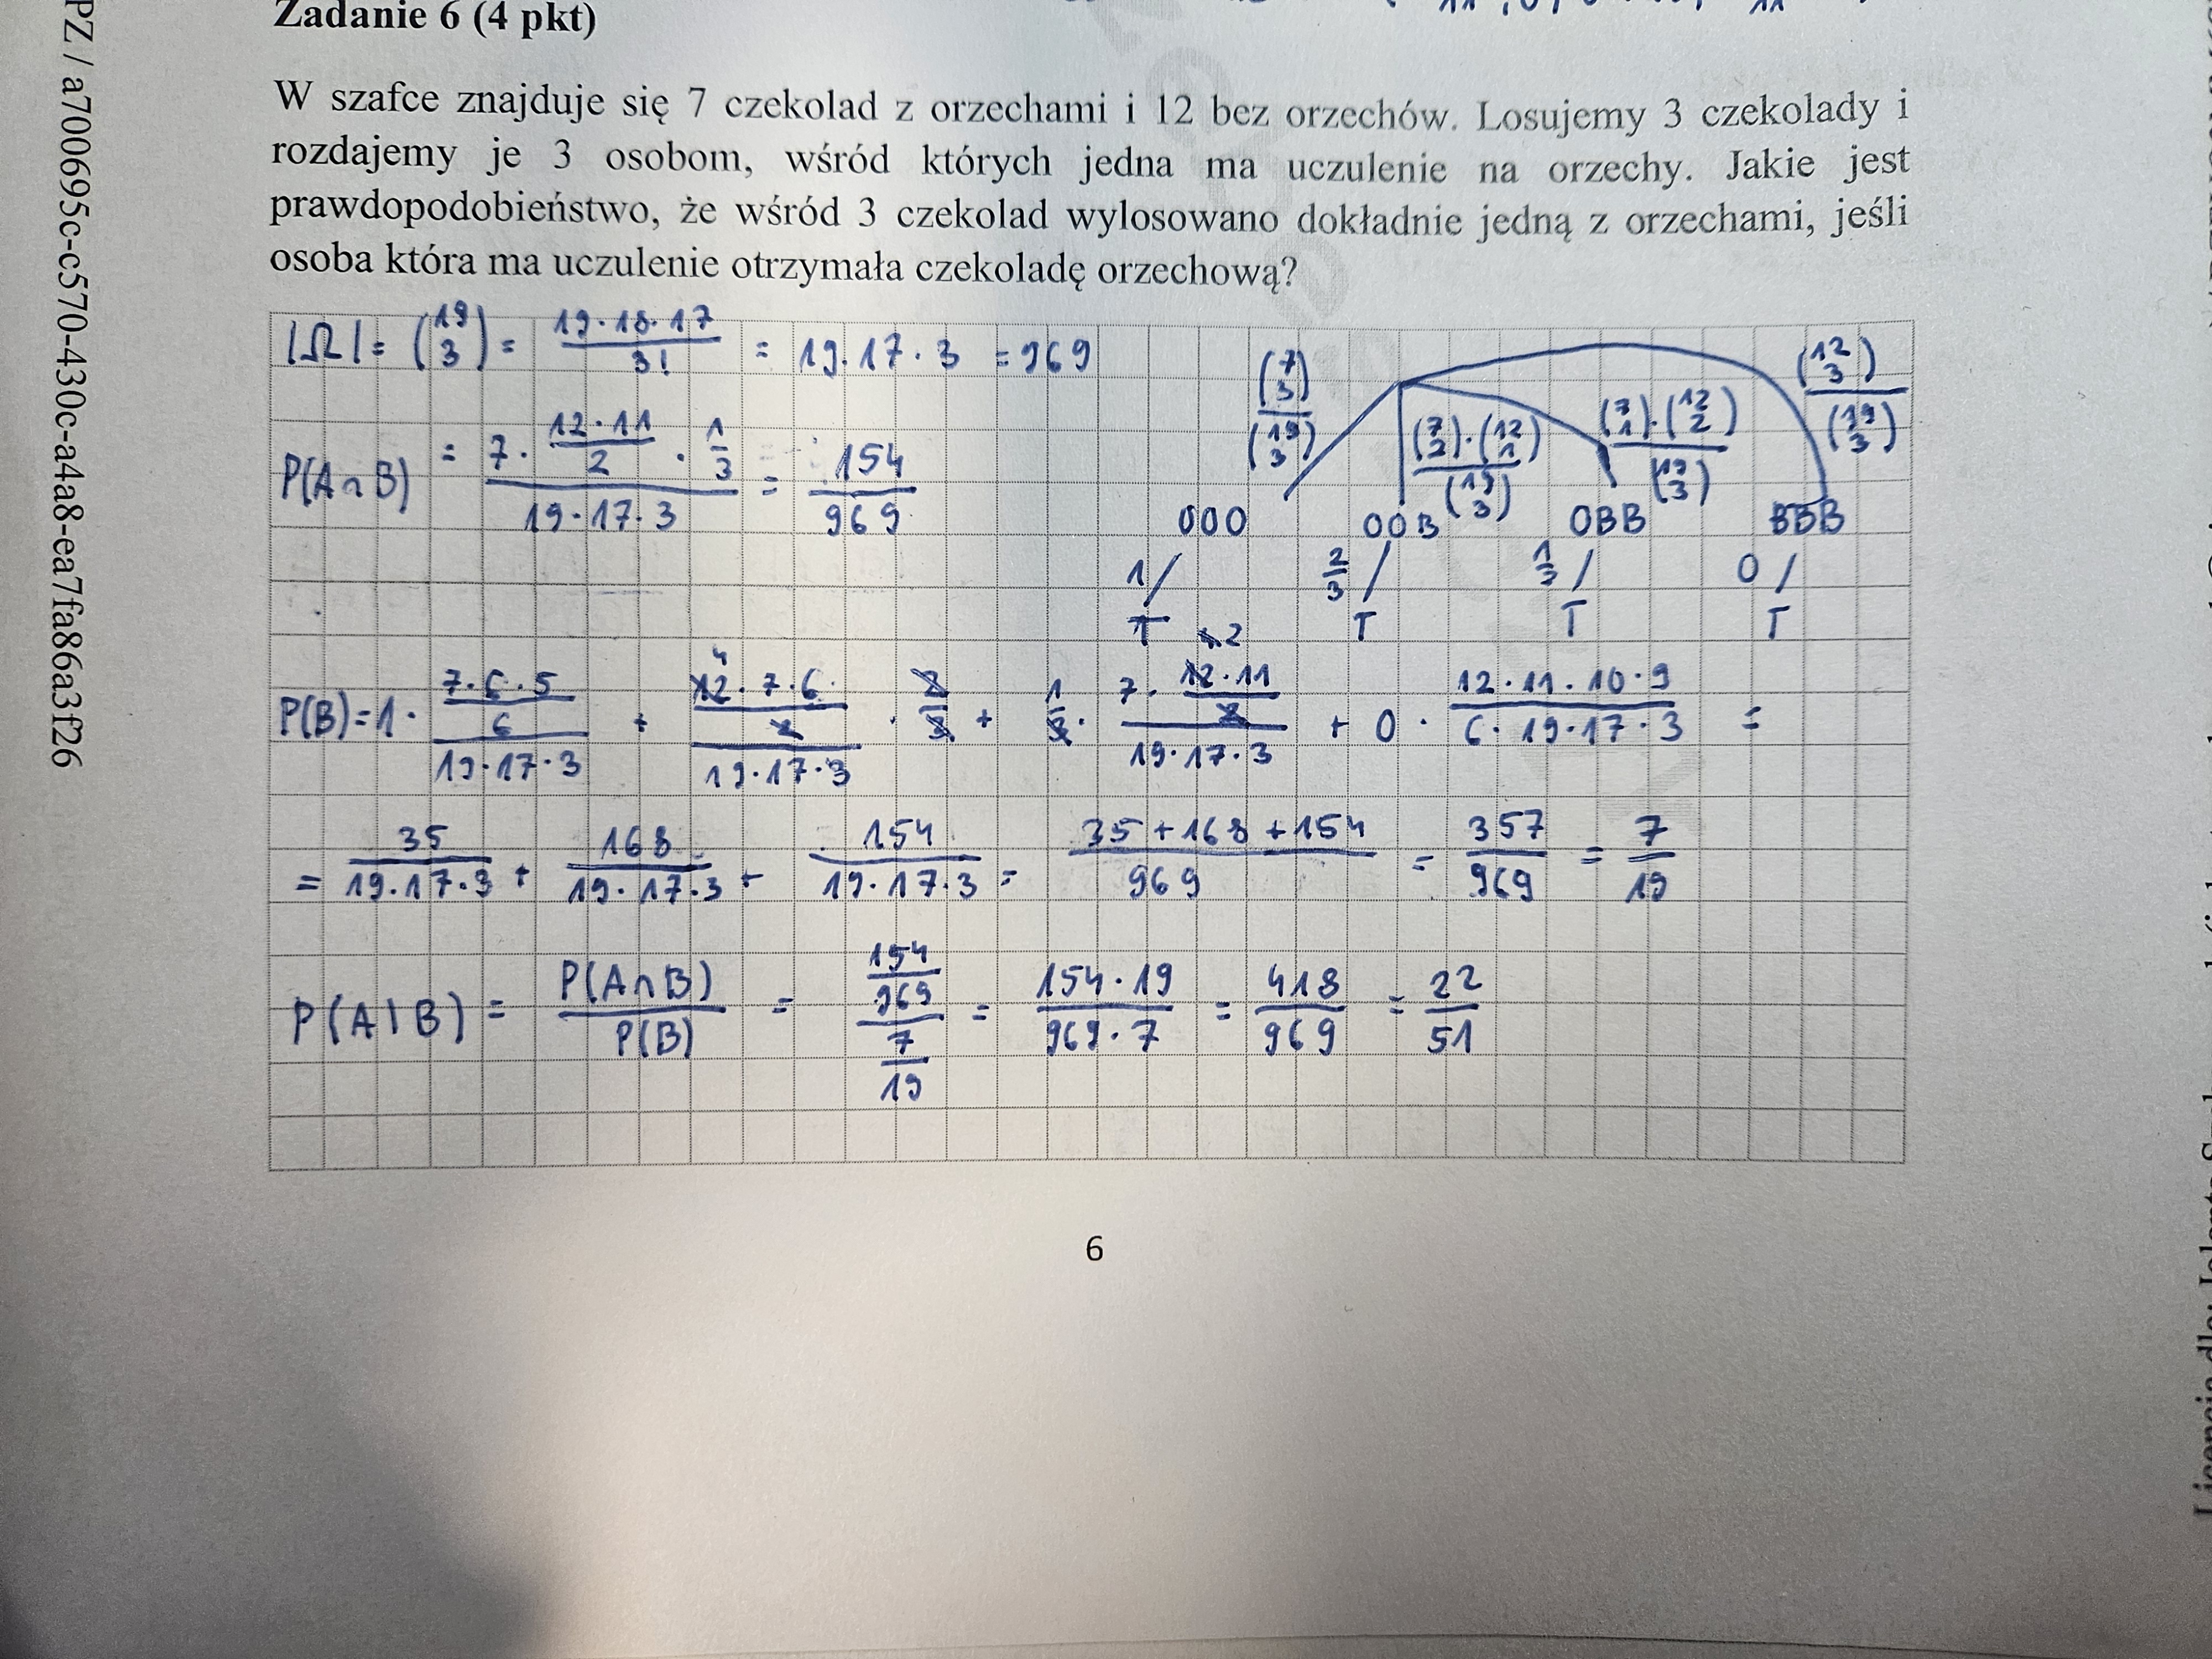 Zadanie 6 (4 pkt)
W szafce znajduje się 7 czekolad z orzechami i 12 bez orzechów. Losujemy 3 czekolady i
rozdajemy je 3 osobom, wśród których jedna ma uczulenie na orzechy. Jakie jest
prawdopodobieństwo, że wśród 3 czekolad wylosowano dokładnie jedną z orzechami, jeśli
osoba która ma uczulenie otrzymała czekoladę orzechową?
|Ω| = (19 3) = 19·18·17 / 3! = 19·17·3 = 969
P(A∩B) = 7 · 12·11/2 · 1/3 / 19·17·3 = 154/969
(7 3)/(19 3) (7 2)·(12 1)/(19 3) (7 1)·(12 2)/(19 3) (12 3)/(19 3)
OOO OOB OBB BBB
1/ 2/3 / 1/3 / 0 /
T T T T
P(B) = 1 · 7·6·5/6 / 19·17·3 + 12·7·6/2 / 19·17·3 · 2/3 + 1/3 · 7 · 12·11/2 / 19·17·3 + 0 · 12·11·10·9 / 6·19·17·3 =
= 35/19·17·3 + 168/19·17·3 + 154/19·17·3 = 35+168+154 / 969 = 357/969 = 7/19
P(A|B) = P(A∩B)/P(B) = 154/969 / 7/19 = 154·19 / 969·7 = 418/969 = 22/51
6
PZ / a7006695c-c570-430c-a4a8-ea7fa86a3f26